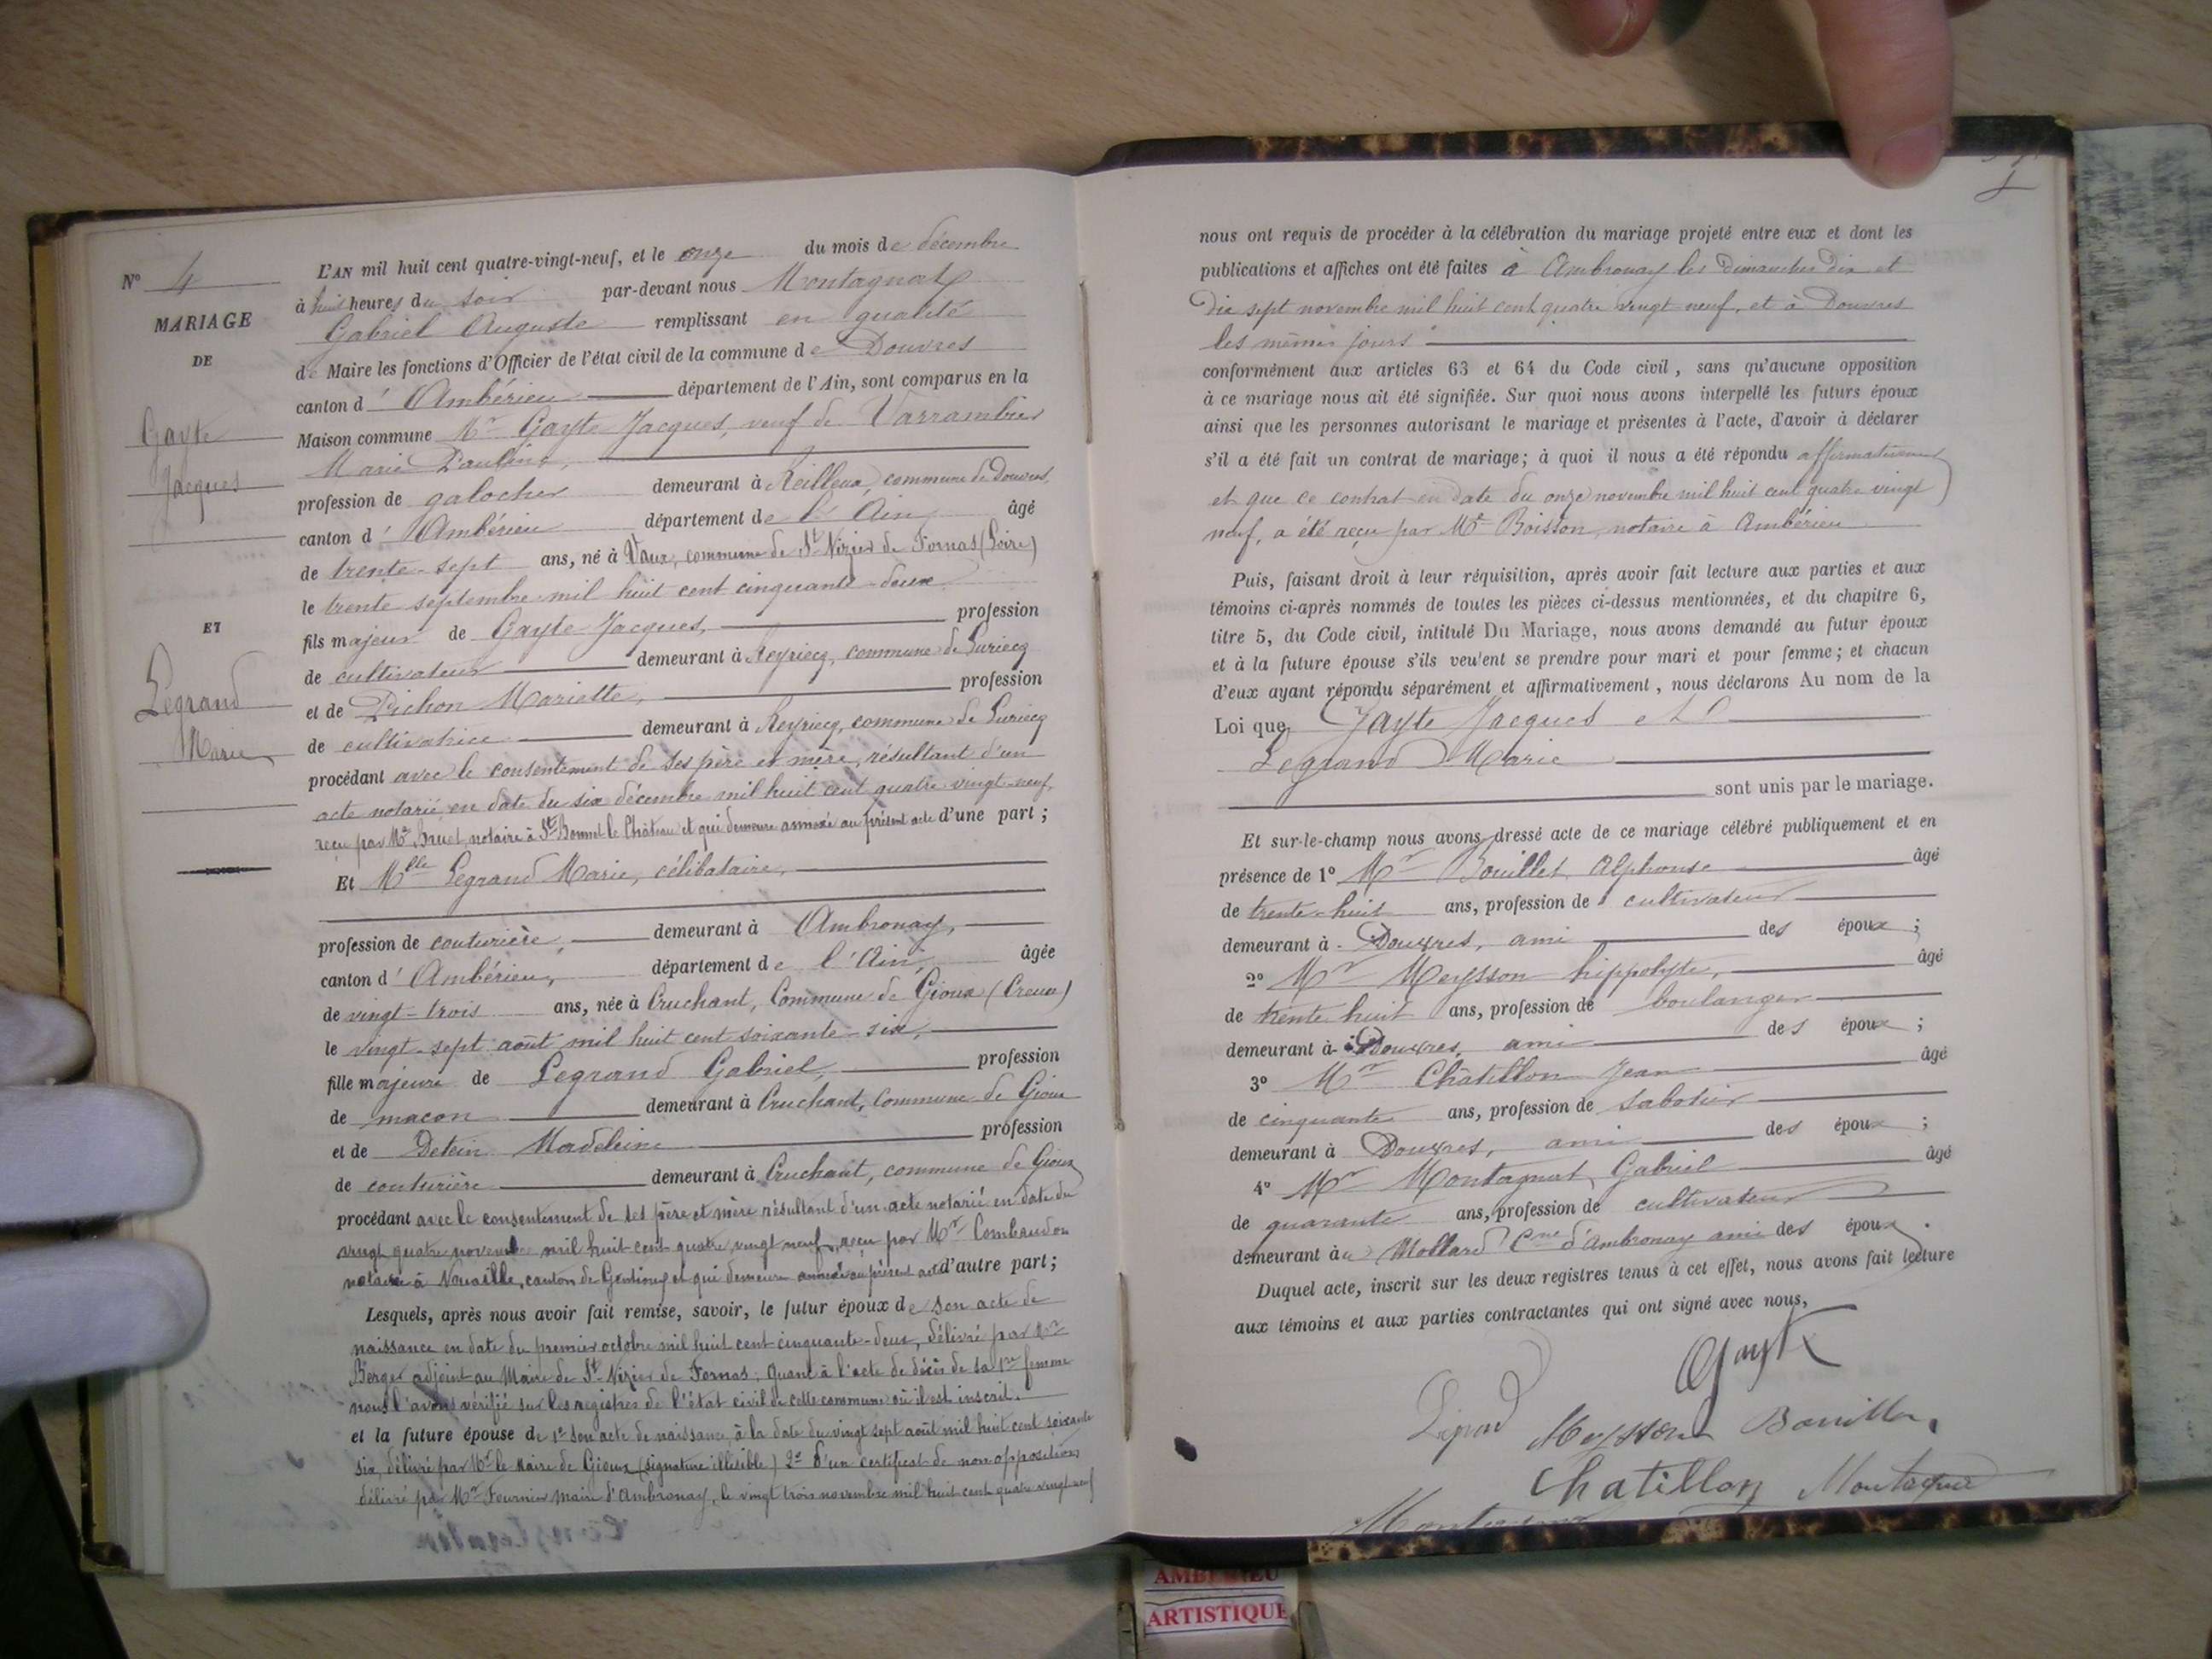 N° 4
MARIAGE
DE
Gayte
Jacques
ET
Legrand
Marie
L'AN mil huit cent quatre-vingt-neuf, et le onze du mois de décembre
à huit heures du soir par-devant nous Montagnat
Gabriel Auguste remplissant en qualité
de Maire les fonctions d'Officier de l'état civil de la commune de Douvres
canton d'Ambérieu département de l'Ain, sont comparus en la
Maison commune Mr Gayte Jacques, veuf de Varrambier
Marie Pauline,
profession de galocher demeurant à Reilleux, commune de Douvres,
canton d'Ambérieu département de l'Ain âgé
de trente-sept ans, né à Vaux, commune de St Nizier de Fornas (Loire)
le trente septembre mil huit cent cinquante-deux
fils majeur de Gayte Jacques, profession
de cultivateur demeurant à Reyriecq, commune de Luriecq
et de Pichon Mariette, profession
de cultivatrice demeurant à Reyriecq, commune de Luriecq
procédant avec le consentement de ses père et mère, résultant d'un
acte notarié en date du six décembre mil huit cent quatre vingt-neuf,
reçu par Me notaire à St Bonnet le Château et qui demeure annexé au présent acte d'une part ;
Et Mlle Legrand Marie, célibataire,
profession de couturière, demeurant à Ambronay,
canton d'Ambérieu, département de l'Ain, âgée
de vingt-trois ans, née à Cruchant, Commune de Gioux (Creuse)
le vingt-sept août mil huit cent soixante-six,
fille majeure de Legrand Gabriel, profession
de maçon demeurant à Cruchant, Commune de Gioux
et de Madeleine profession
de couturière demeurant à Cruchant, commune de Gioux
procédant avec le consentement de ses père et mère résultant d'un acte notarié en date du
vingt quatre novembre mil huit cent quatre vingt neuf, reçu par Mr Combaudon
notaire à canton de Gentioux et qui demeure annexé au présent acte d'autre part ;
Lesquels, après nous avoir fait remise, savoir, le futur époux de son acte de
naissance en date du premier octobre mil huit cent cinquante-deux, délivré par Mr
Berger adjoint au Maire de St Nizier de Fornas, Quant à l'acte de décès de sa 1re femme
nous l'avons vérifié sur les registres de l'état civil de cette commune où il est inscrit.
et la future épouse de 1° son acte de naissance, à la date du vingt sept août mil huit cent soixante
six, délivré par Mr le Maire de Gioux (signature illisible) 2° d'un certificat de non opposition
délivré par Mr Fournier maire d'Ambronay, le vingt trois novembre mil huit cent quatre vingt neuf
nous ont requis de procéder à la célébration du mariage projeté entre eux et dont les
publications et affiches ont été faites à Ambronay les Dimanches dix et
Dix sept novembre mil huit cent quatre vingt neuf, et à Douvres
les mêmes jours
conformément aux articles 63 et 64 du Code civil, sans qu'aucune opposition
à ce mariage nous ait été signifiée. Sur quoi nous avons interpellé les futurs époux
ainsi que les personnes autorisant le mariage et présentes à l'acte, d'avoir à déclarer
s'il a été fait un contrat de mariage; à quoi il nous a été répondu affirmativement
et que ce contrat en date du onze novembre mil huit cent quatre vingt
neuf, a été reçu par Me Boisson, notaire à Ambérieu
Puis, faisant droit à leur réquisition, après avoir fait lecture aux parties et aux
témoins ci-après nommés de toutes les pièces ci-dessus mentionnées, et du chapitre 6,
titre 5, du Code civil, intitulé Du Mariage, nous avons demandé au futur époux
et à la future épouse s'ils veulent se prendre pour mari et pour femme; et chacun
d'eux ayant répondu séparément et affirmativement, nous déclarons Au nom de la
Loi que Gayte Jacques et
Legrand Marie
sont unis par le mariage.
Et sur-le-champ nous avons dressé acte de ce mariage célébré publiquement et en
présence de 1° Mr Bouillet Alphonse âgé
de trente-huit ans, profession de cultivateur
demeurant à Douvres, ami des époux ;
2° Mr Meysson hippolyte, âgé
de trente huit ans, profession de boulanger
demeurant à Douvres, ami des époux ;
3° Mr Châtillon Jean âgé
de cinquante ans, profession de sabotier
demeurant à Douvres, ami des époux ;
4° Mr Montagnat Gabriel âgé
de quarante ans, profession de cultivateur
demeurant au Mollard Cne d'Ambronay ami des époux.
Duquel acte, inscrit sur les deux registres tenus à cet effet, nous avons fait lecture
aux témoins et aux parties contractantes qui ont signé avec nous,
Gayte
Meysson
Chatillon Montagnat
AMBERIEU
ARTISTIQUE